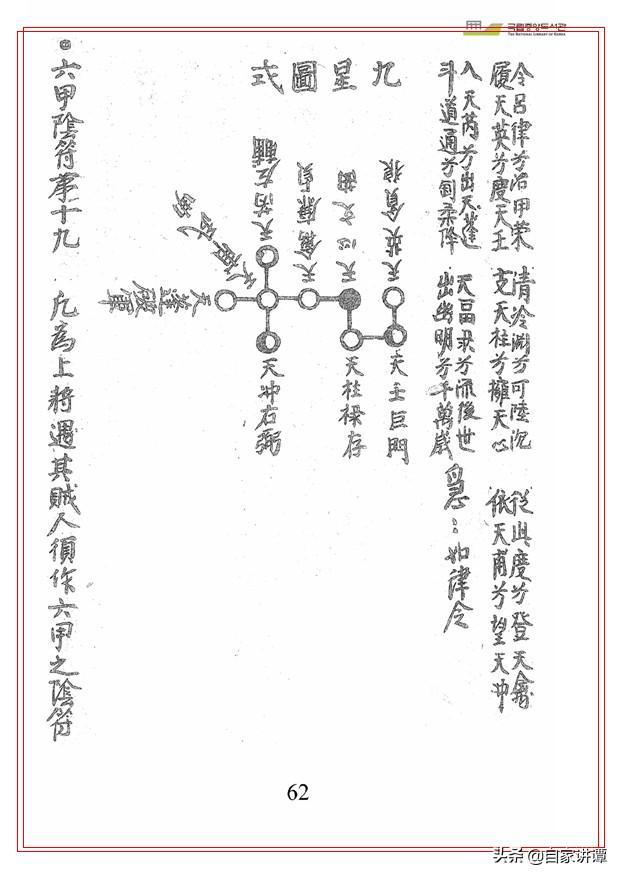 국립중앙도서관
THE NATIONAL LIBRARY OF KOREA
令呂律兮治甲榮 清冷淵兮可陸沉 從此度兮登天禽
履天英兮度天壬 支天柱兮擁天心 依天甫兮望天冲
入天芮兮出天蓬 天畐畀兮流後世
斗道通兮剛柔降 出幽明兮千萬歲 急：如律令
九星圖式
天英貪狼
天心文曲
天禽廉貞
天芮左輔
天蓬破軍
天壬巨門
天柱祿存
天冲右弼
六甲陰符第十九 凡為上將遇其賊人須作六甲之陰符
62
头条 @自家讲谭